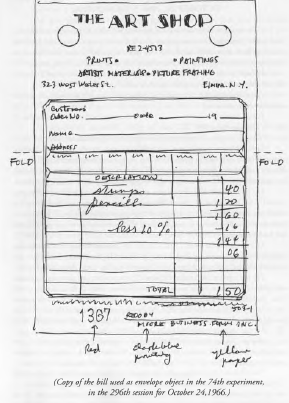 THE ART SHOP
RE 2-4573
PRINTS • • PAINTINGS
ARTISTS MATERIALS • PICTURE FRAMING
323 West Water St. Elmira N.Y.
Customers
Order No. Date 19
Name
Address
FOLD FOLD
DESCRIPTION
stumps 40
pencills 1 20
1 60
less 10 % 16
1 44
06
TOTAL 1 50
1387 MOORE BUSINESS FORMS INC
Red dark blue printing yellow paper
(Copy of the bill used as envelope object in the 74th experiment,
in the 296th session for October 24, 1966.)